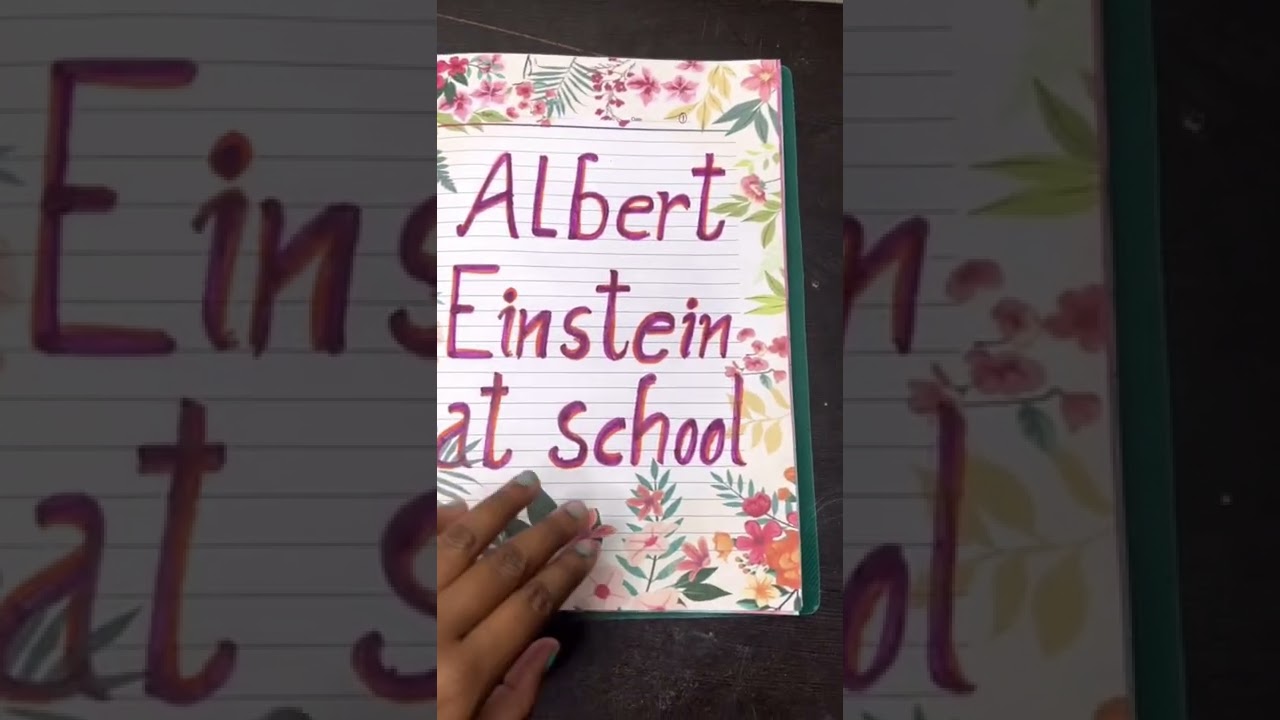 Date
1
Albert
Einstein
at school